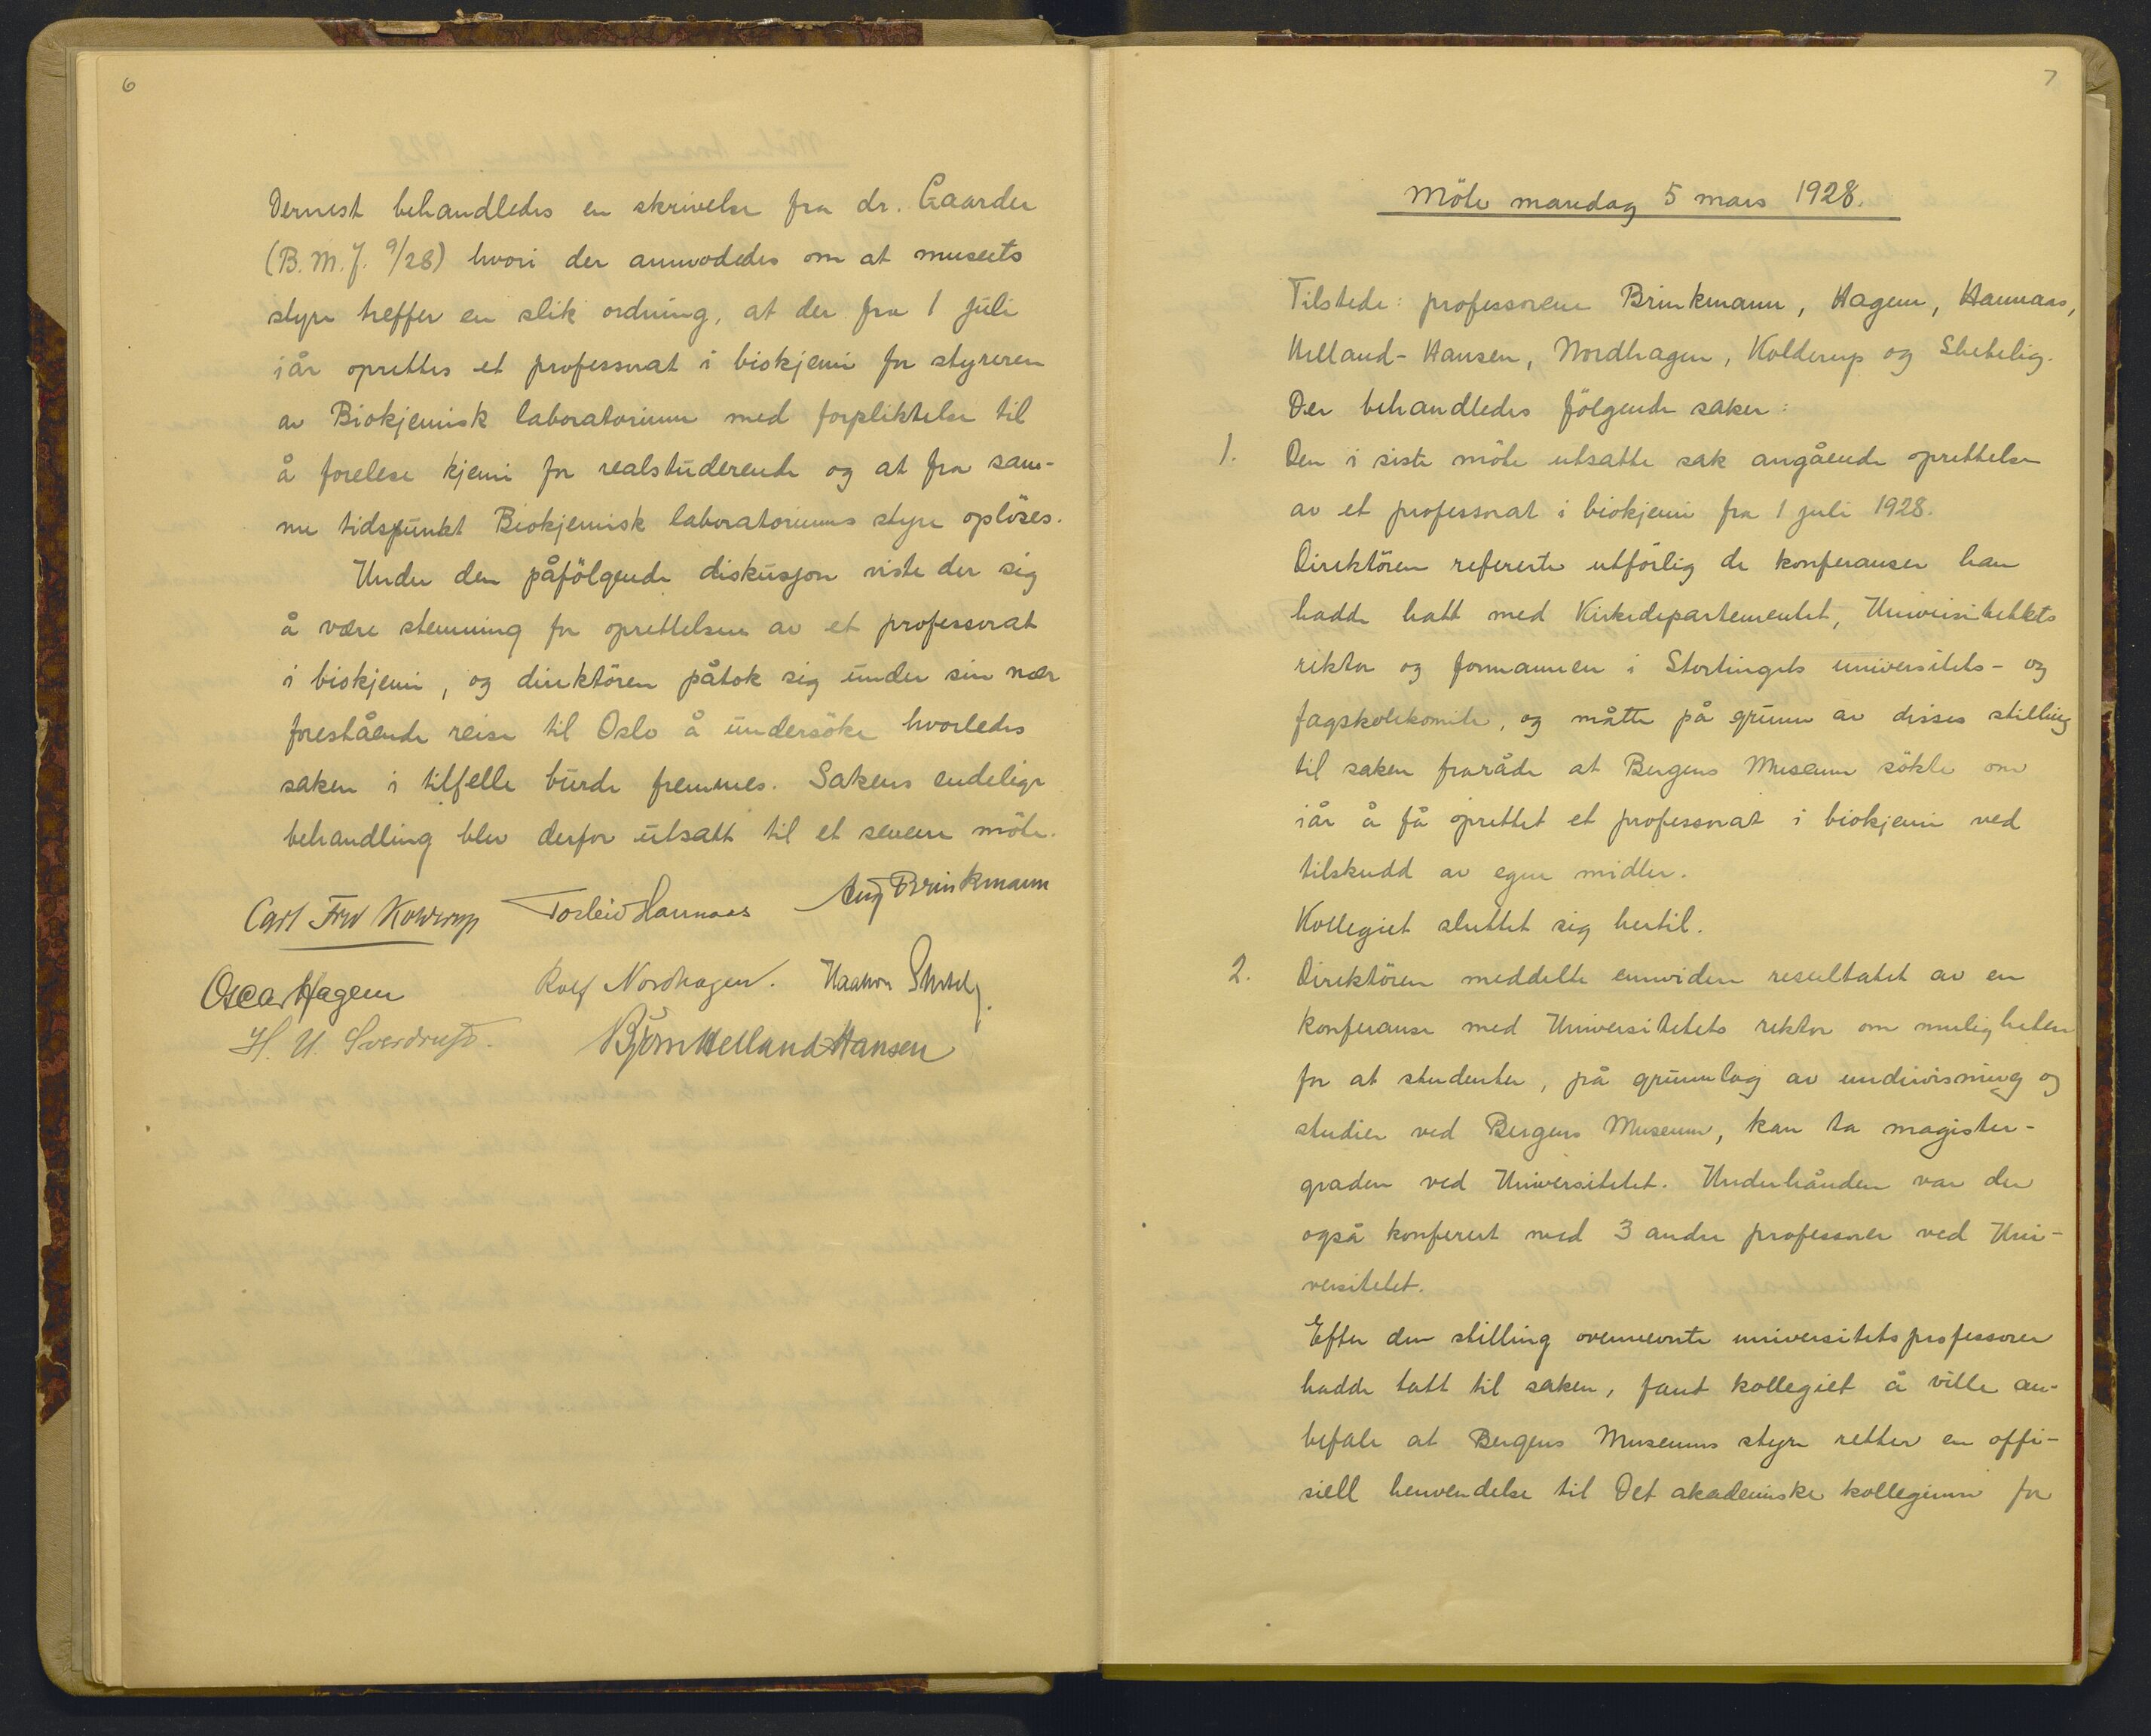 6
Dernest behandledes en skrivelse fra dr. Gaarder
(B. M. J. 9/28) hvori der anmodedes om at museets
styre treffer en slik ordning, at der fra 1 juli
iår oprettes et professorat i biokjemi for styreren
av Biokjemisk laboratorium med forpliktelse til
å forelese kjemi for realstuderende og at fra sam-
me tidspunkt Biokjemisk laboratoriums styre oplöses.
Under den påfölgende diskusjon viste der sig
å være stemning for oprettelsen av et professorat
i biokjemi, og direktören påtok sig under sin nær
forestående reise til Oslo å undersöke hvorledes
saken i tilfelle burde fremmes. Sakens endelige
behandling blev derfor utsatt til et senere möte.
Carl Fred Kolderup Torleiv Hannaas Aug Brinkmann
Oscar Hagem Rolf Nordhagen. Haakon Shetelig.
H. U. Sverdrup. Björn Helland-Hansen
7
Möte mandag 5 mars 1928.
Tilstede: professorene Brinkmann, Hagem, Hannaas,
Helland-Hansen, Nordhagen, Kolderup og Shetelig.
Der behandledes fölgende saker:
1. Den i siste möte utsatte sak angående oprettelse
av et professorat i biokjemi fra 1 juli 1928.
Direktören refererte utförlig de konferanser han
hadde hatt med Kirkedepartementet, Universitetets
rektor og formannen i Stortingets universitets- og
fagskolekomite, og måtte på grunn av disses stilling
til saken fraråde at Bergens Museum sökte om
iår å få oprettet et professorat i biokjemi ved
tilskudd av egne midler.
Kollegiet sluttet sig hertil.
2. Direktören meddelte enviden resultatet av en
konferanse med Universitetets rektor om muligheten
for at studenter, på grunnlag av undervisning og
studier ved Bergens Museum, kan ta magister-
graden ved Universitetet. Underhånden var der
også konferert med 3 andre professorer ved Uni-
versitetet.
Efter den stilling ovennevnte universitetsprofessorer
hadde tatt til saken, fant kollegiet å ville an-
befale at Bergens Museums styre retter en offi-
siell henvendelse til Det akademiske kollegium for